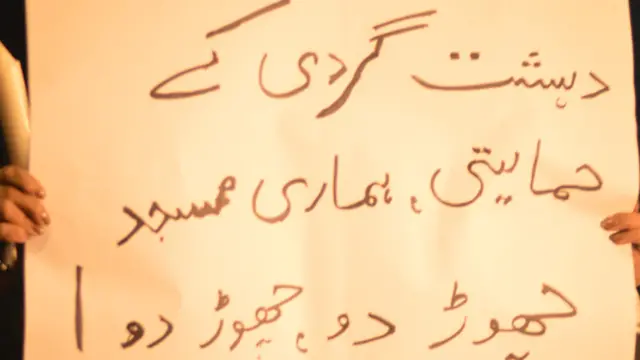 دہشت گردی کے
حمایتی، ہماری مسجد
چھوڑ دو، چھوڑ دو!